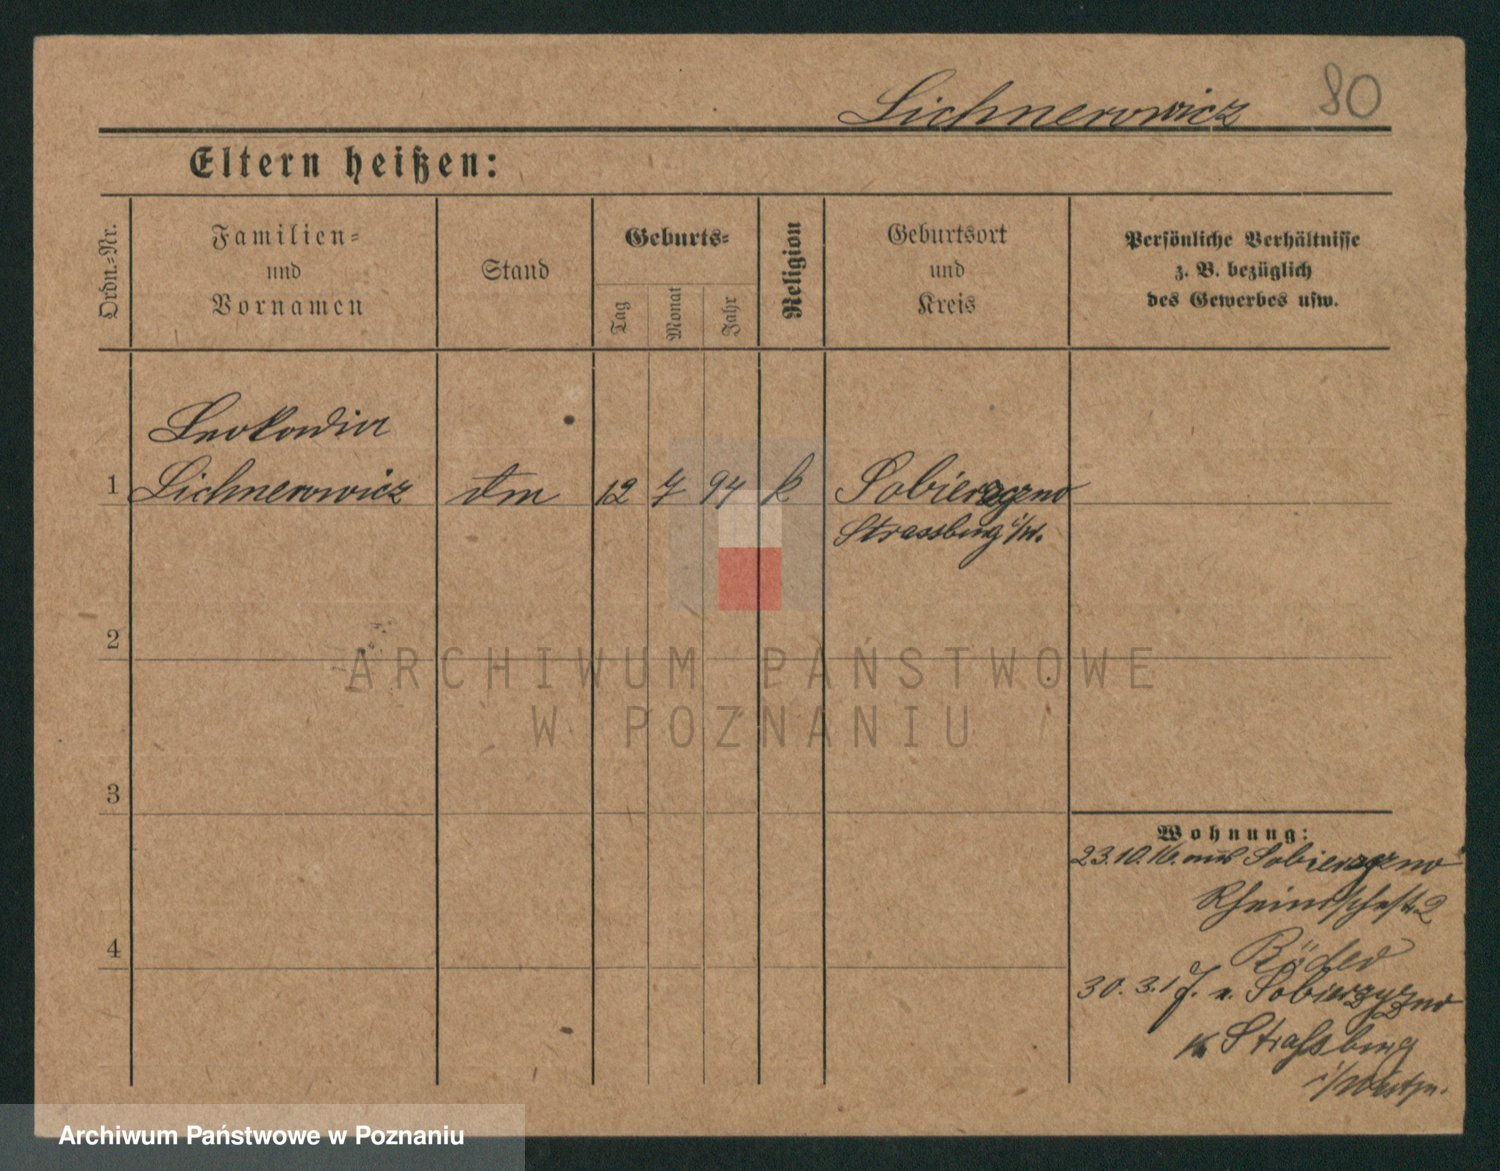 Lichnerowicz 80
Eltern heißen:
Ordn.-Nr.
Familien-
und
Vornamen
Stand
Geburts-
Tag
Monat
Jahr
Religion
Geburtsort
und
Kreis
Persönliche Verhältnisse
z. B. bezüglich
des Gewerbes usw.
Leokadia
1 Lichnerowicz 12 7 94 k
Strassburg i/W.
2
ARCHIWUM PAŃSTWOWE
W POZNANIU
3
Wohnung:
23.10.16. aus
2
4
30. 3. 17. n.
Strassburg
i/Westpr.
Archiwum Państwowe w Poznaniu